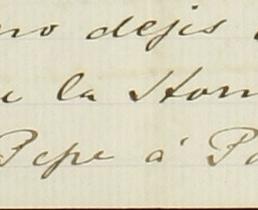 no dejis
la Hon
Pepe á Pa